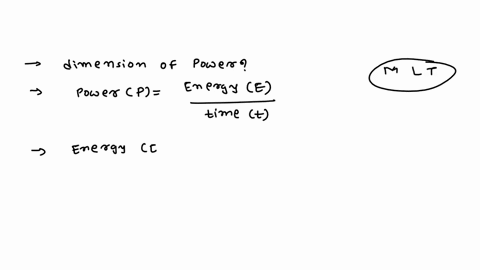 → dimension of Power?
M L T
→ Power (P) = Energy (E) / time (t)
→ Energy (E